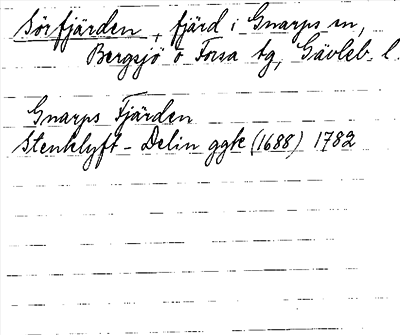 Sörfjärden, fjärd i Gnarps sn,
Bergsjö o Forsa tg, Gävleb. l.
Gnarps Fjärden
Stenklyft - Delin ggk (1688) 1782